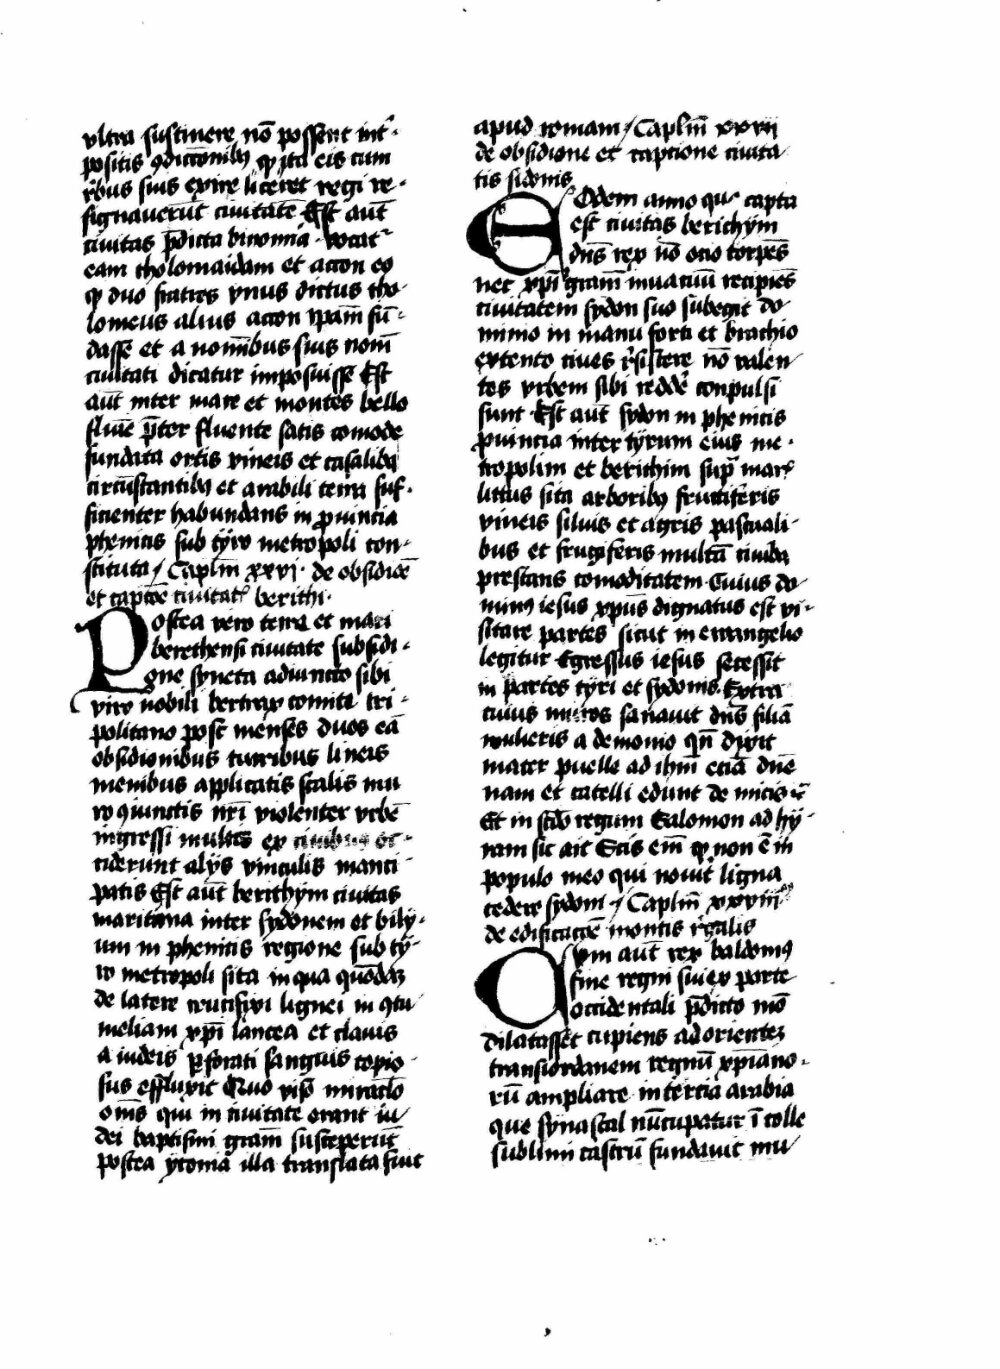 vltra sustinere nō possent int͛-
positis ɔdiccionibꝫ ꝙ ita eis cum
r̄bus suis exire liceret regi re-
signauerūt ciuitatē Est aūt
ciuitas p̄dicta binomia vocāt
eam tholomaidam et accon eo
ꝙ duo fratres vnus dictus tho-
lomeus alius accon ip̄am fū-
dasse et a nom̄ibus suis nom̄
ciuitati dicatur imposuisse Est
aūt inter mare et montes bello
fluīe p̄ter fluente satis comode
fundata ortis vineis et casalibꝫ
circūstantibꝫ et arabili terra suf-
ficienter habundans in ꝓuincia
phenicis sub tyro metropoli con-
stituta / Caplm̄ xxvj · de obsidiōe
et capcōe ciuitat͛ berithi ·
Postea vero terra et mari
berethensi ciuitate subsidi-
one syncta adiuncto sibi
viro nobili bertrax comiti tri-
politano post menses duos eā
obsidionibus turribus lineis
menibus applicatis scalis mu
ro ɔiunctis nr̄i violenter vrbē
ingressi multis ex ciuibus oc-
ciderunt alijs vinculis manci-
patis Est aūt berithym ciuitas
maritima inter sydonem et bily-
um in phenicis regione sub ty-
ro metropoli sita in qua quōdaꝫ
de latere crucifixi lignei in ɔtu
meliam xp̄i lancea et clauis
a iudeis ꝑforati sanguis copio-
sus effluxit Quo viso miraclo
om̄s qui in ciuitate erant iu-
dei baptismi gram̄ susceperūt
postea ycoma illa translata fuit
apud romam / Caplm̄ xxvij
de obsidione et capcione ciuita
tis sidonis
Eodem anno quo capta
est ciuitas berichym
dn̄s rex nō ocio torpēs
nec xp̄i gram̄ inuacuū recipiēs
ciuitatem sydon suo subegit do-
minio in manu forti et brachio
extento ciues r̄sistere nō valen-
tes vrbem sibi redde͛ conpulsi
sunt · Est aūt sydon in phenicis
ꝓuincia inter tyrum eius me-
tropolim et berichim sup͛ mar͛
littus sita arboribꝫ fructiferis
vineis siluis et agris pascuali-
bus et frugiferis multā ciuibꝫ
prestans comoditatem · Cuius do-
minꝰ iesus xp̄us dignatus est vi-
sitare partes sicut in ewangelio
legitur Egressus iesus secessit
in partes tyri et sydonis Extra
cuius muros sanauit dn̄s filiā
mulieris a demonio qn̄ dixit
mater puelle ad ihm̄ eciā dn̄e
nam et catelli edunt de micis ꝛc̄
Et in scd̄o regum Salomon ad hy-
ram sic ait Scis em̄ ꝙ non ē in
populo meo qui nouit ligna
cedere sydom / Caplm̄ xxviij
de edificacōe montis r̄galis
Cvm aūt rex baldoinꝰ
fine regni sui ex parte
occidentali p̄dicto mō
dilatasset cupiens ad orienteꝫ
transiordanem regnū xp̄iano-
rū ampliare in tercia arabia
que synastal nūcupatur ī colle
sublimi castrū fundauit mu